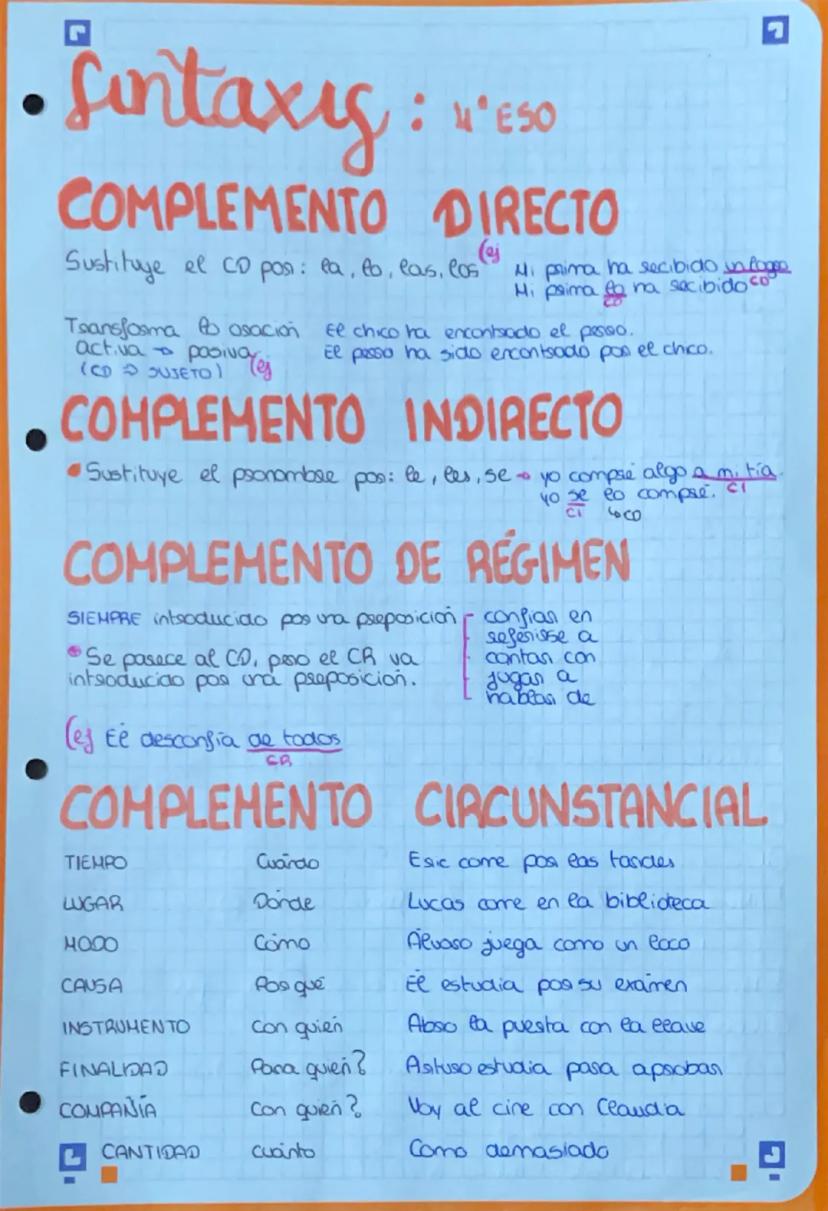 Sintaxis: 4º ESO
COMPLEMENTO DIRECTO
Sustituye el CD por: la, lo, las, los (ej Mi prima ha recibido un logro
CD
Mi prima lo ha recibido
CD
Transforma la oración El chico ha encontrado el perro.
activa → pasiva (ej El perro ha sido encontrado por el chico.
(CD → SUJETO)
COMPLEMENTO INDIRECTO
Sustituye el pronombre por: le, les, se → yo compré algo a mi tía.
CI
yo se lo compré.
CI ↳CD
COMPLEMENTO DE RÉGIMEN
SIEMPRE introducido por una preposición
confiar en
referirse a
contar con
jugar a
hablar de
Se parece al CD, pero el CR va
introducido por una preposición.
(ej Él desconfía de todos
CR
COMPLEMENTO CIRCUNSTANCIAL
TIEMPO Cuándo Eric come por las tardes
LUGAR Dónde Lucas come en la biblioteca
MODO Cómo Álvaro juega como un loco
CAUSA Por qué Él estudia por su exámen
INSTRUMENTO Con quién Abro la puerta con la llave
FINALIDAD Para quién? Arturo estudia para aprobar
COMPAÑÍA Con quién? Voy al cine con Claudia
CANTIDAD Cuánto Como demasiado